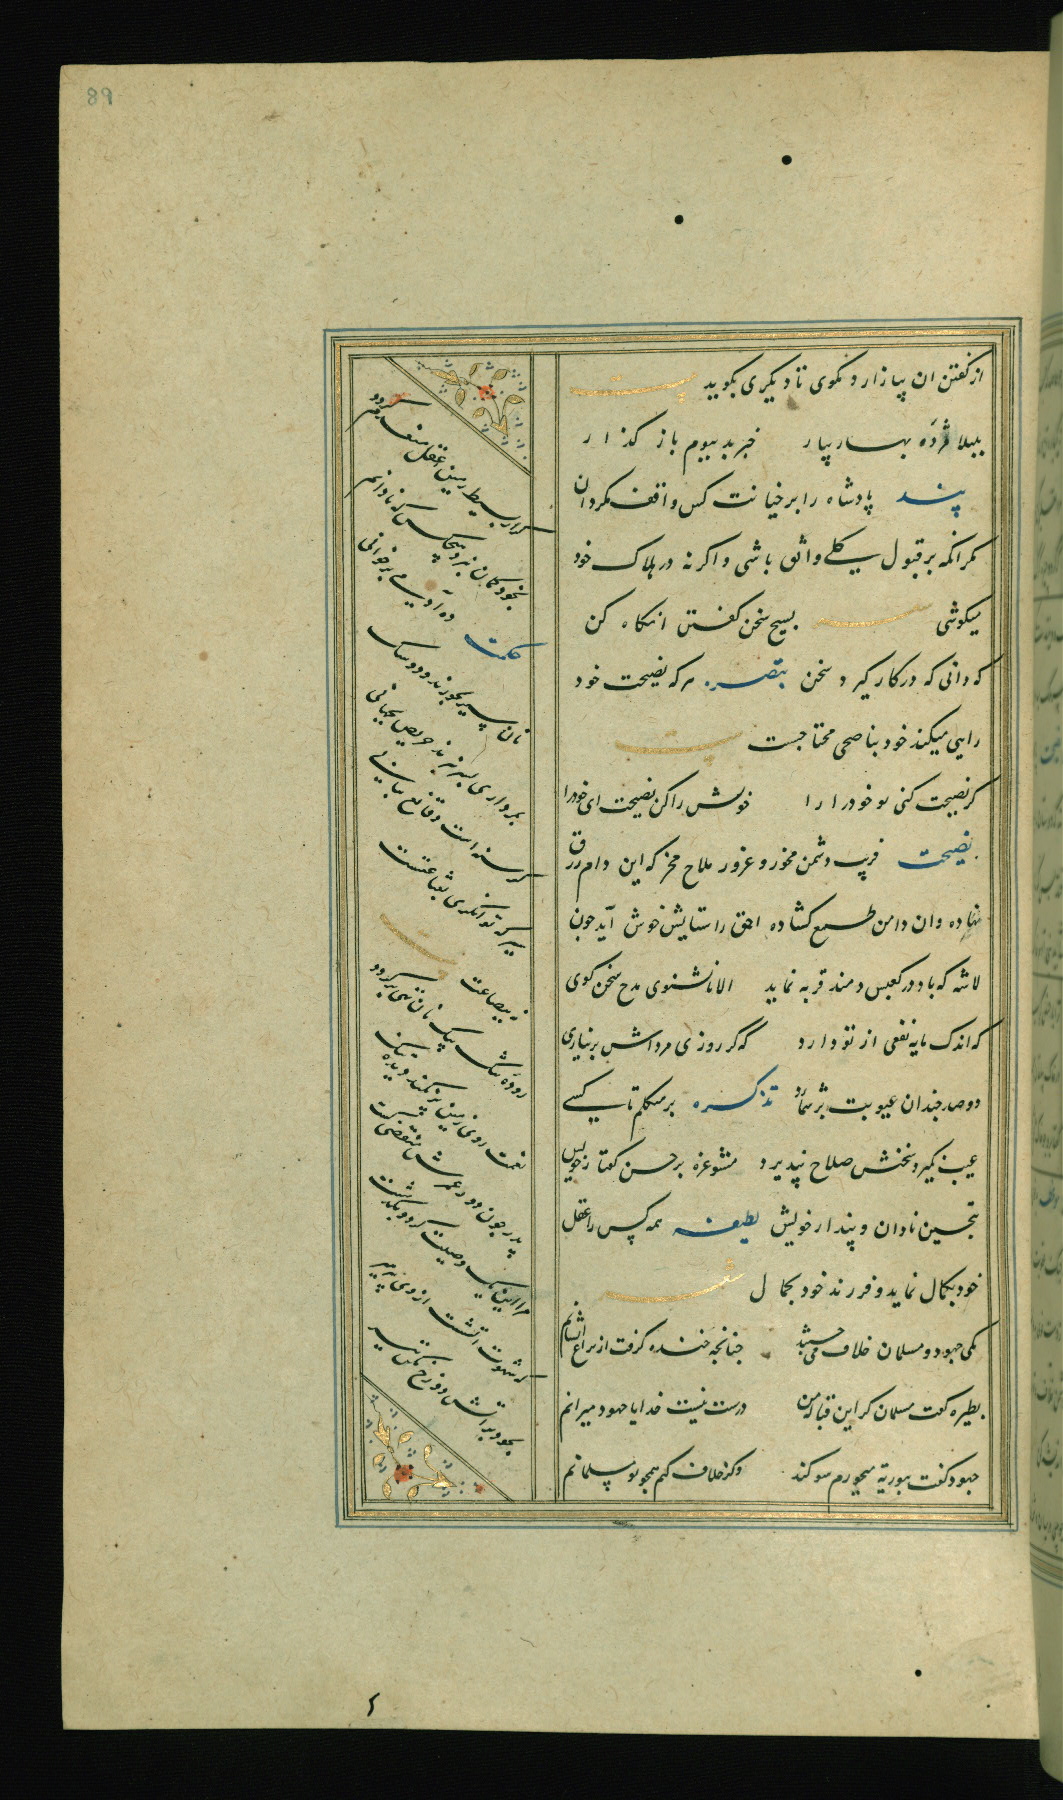 89
از کفتن ان بیازارد مکوی تا دیکری بکوید بیت
بلبلا مژده بهار بیار خبر بد ببوم باز کذار
پند پادشاه را برخیانت کس واقف مکردان
مکر انکه بر قبول کلی واثق باشی واکرنه در هلاک خود
میکوشی بسیج سخن کفتن انکاه کن
که دانی که در کار کیرد سخن هرکه نصیحت خود
رایی میکند خود بناصحی محتاجست بیت
کر نصیحت کنی تو خودرا را خویش را کن نصیحت ای خودرا
نصیحت فریب دشمن مخور و غرور مداح مخر که این دام زرق
نهاده وان دامن طمع کشاده احمق را ستایش خوش آید چون
لاشه که باد در کعبش دمند فربه نماید الا تا نشنوی مدح سخن کوی
که اندک مایه نفعی از تو دارد که کر روزی مرادش برنیاری
دوصد چندان عیوبت برشمارد تذکره متکلم تا کسی
عیب نکیرد سخنش صلاح نپذیرد مشو غره بر حسن کفتار خویش
بتحسین نادان و پندار خویش لطیفه همه کس را عقل
خود بکمال نماید و فرزند خود بجمال
یکی جهود و مسلمان خلاف می جستند چنانچه خنده کرفت از نزاع ایشانم
بطیره کفت مسلمان کر این قباله من درست نیست خدایا جهود میرانم
جهود کفت بتوریة میخورم سوکند وکر خلاف کنم همچو تو مسلمانم
کر از بسیط زمین عقل منعدم کردد
بخود کمان نبرد هیچکس که نادانم
حکمت ده آدمی بر خوانی
نان بسر نخورند و دو سک
بمرداری بسر نبرند حریص بجهانی
کرسنه است و قانع بنانی
توانکری بقناعت
به ببضاعت
رودهٔ تنک بیک نان تهی پر کردد
نعمت روی زمین پر نکند دیدهٔ تنک
پدر چون دور عمرش منقضی کشت
مرا این یک وصیت کرد و بکذشت
که شهوت آتشست از وی بپرهیز
بخود بر آتش دوزخ مکن تیز